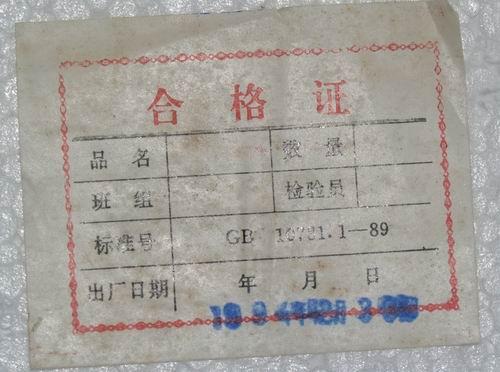 合格证
品名 数量
班组 检验员
标准号 GB 10781.1—89
出厂日期 年 月 日